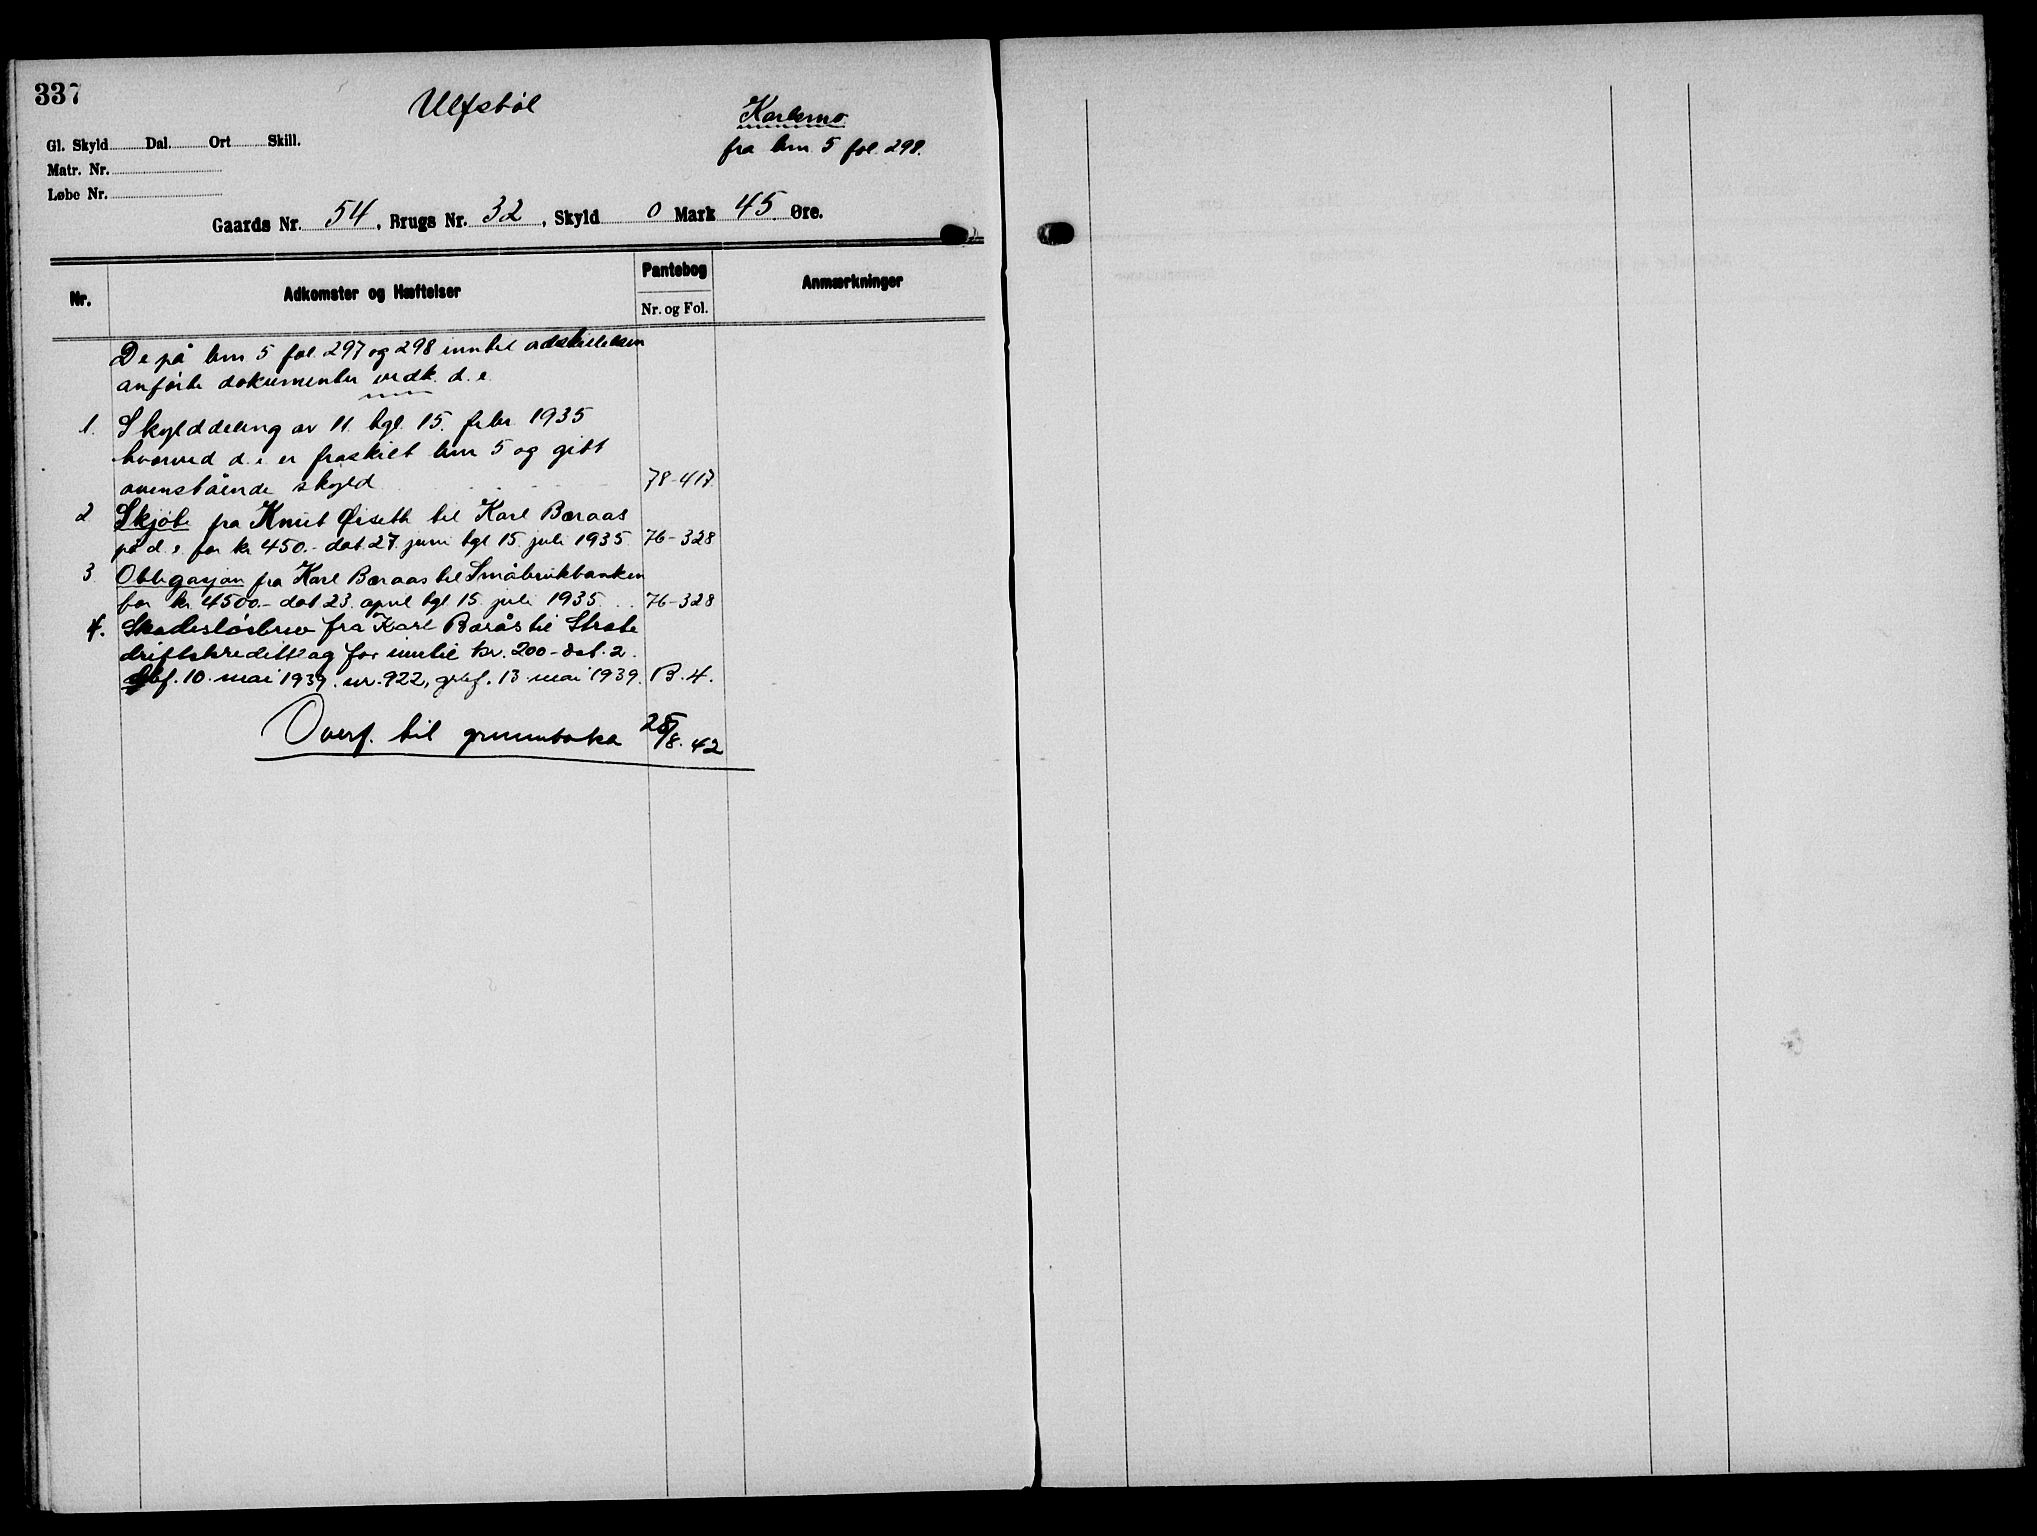 337
Ulfsbøl
Karlsmo
fra bnr 5 fol. 298.
Gl. Skyld Dal. Ort Skill.
Matr. Nr.
Løbe Nr.
Gaards Nr. 54, Brugs Nr. 32, Skyld 0 Mark 45 Øre.
Nr. Adkomster og Hæftelser Pantebog Nr. og Fol. Anmærkninger
De på bnr 5 fol 297 og 298 inntil adskillelsen
anførte dokumenter vedk. d. e.
1. Skylddeling av 11. tgl. 15. febr 1935
hvorved d. e. er fraskilt bnr 5 og gitt
ovenstående skyld 78-417
2 Skjøte fra Knut Øiseth til Karl Børaas
på d. e. for kr 450.- dat. 27. juni tgl 15. juli 1935. 76-328
3 Obligasjon fra Karl Børaas til Småbrukbanken
for kr. 4500.- dat 23. april tgl 15. juli 1935. 76-328
4. Skadesløsbrev fra Karl Børås til
driftskredittlag for inntil kr. 200.- dat. 2.
dbf. 10. mai 1939. nr. 922, grbf. 13 mai 1939. B. 4.
Overf. til grunnboka 28/8. 42